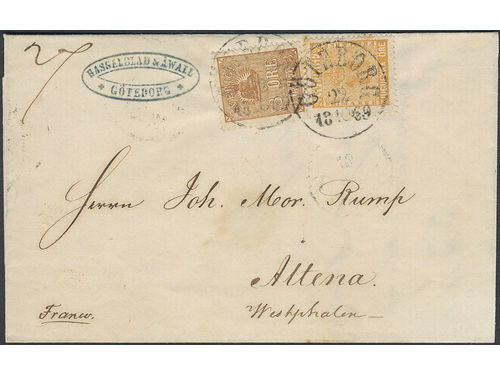 HASSELBLAD & AWALL
GÖTEBORG
ÖRE
GÖTEBORG
22
18 69
Herrn Joh. Mor. Rump
Altena.
Westphalen
Franco.